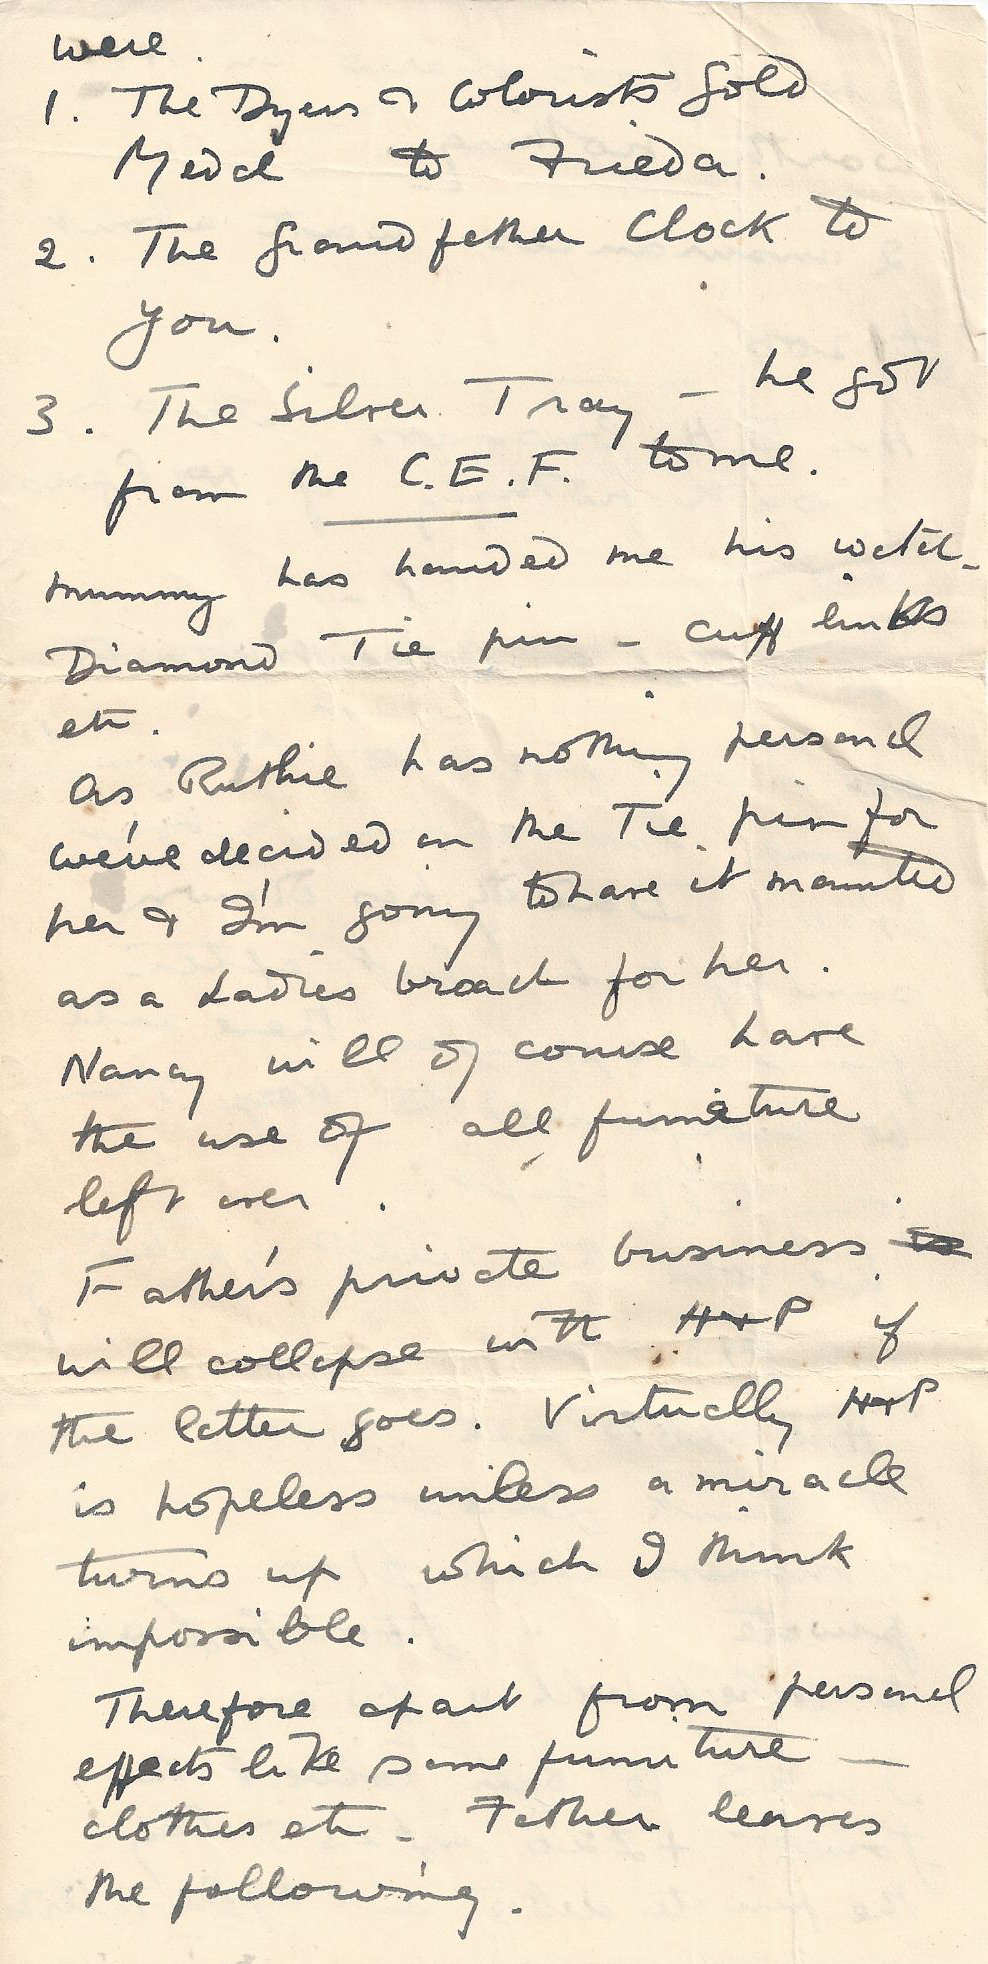 were.
1. The Dyers & Colorists Gold
Medal to Frieda.
2. The Grandfather Clock to
you.
3. The Silver Tray - he got
from the C.E.F. to me.
Mummy has handed me his watch -
Diamond Tie pin - cuff links
etc.
As Ruthie has nothing personal
we've decided on the Tie pin for
her & I'm going to have it mounted
as a Ladies broach for her.
Nancy will of course have
the use of all furniture
left over.
Father's private business
will collapse with H&P if
the latter goes. Virtually H&P
is hopeless unless a miracle
turns up which I think
impossible.
Therefore apart from personal
effects like some furniture -
clothes etc - Father leaves
the following.